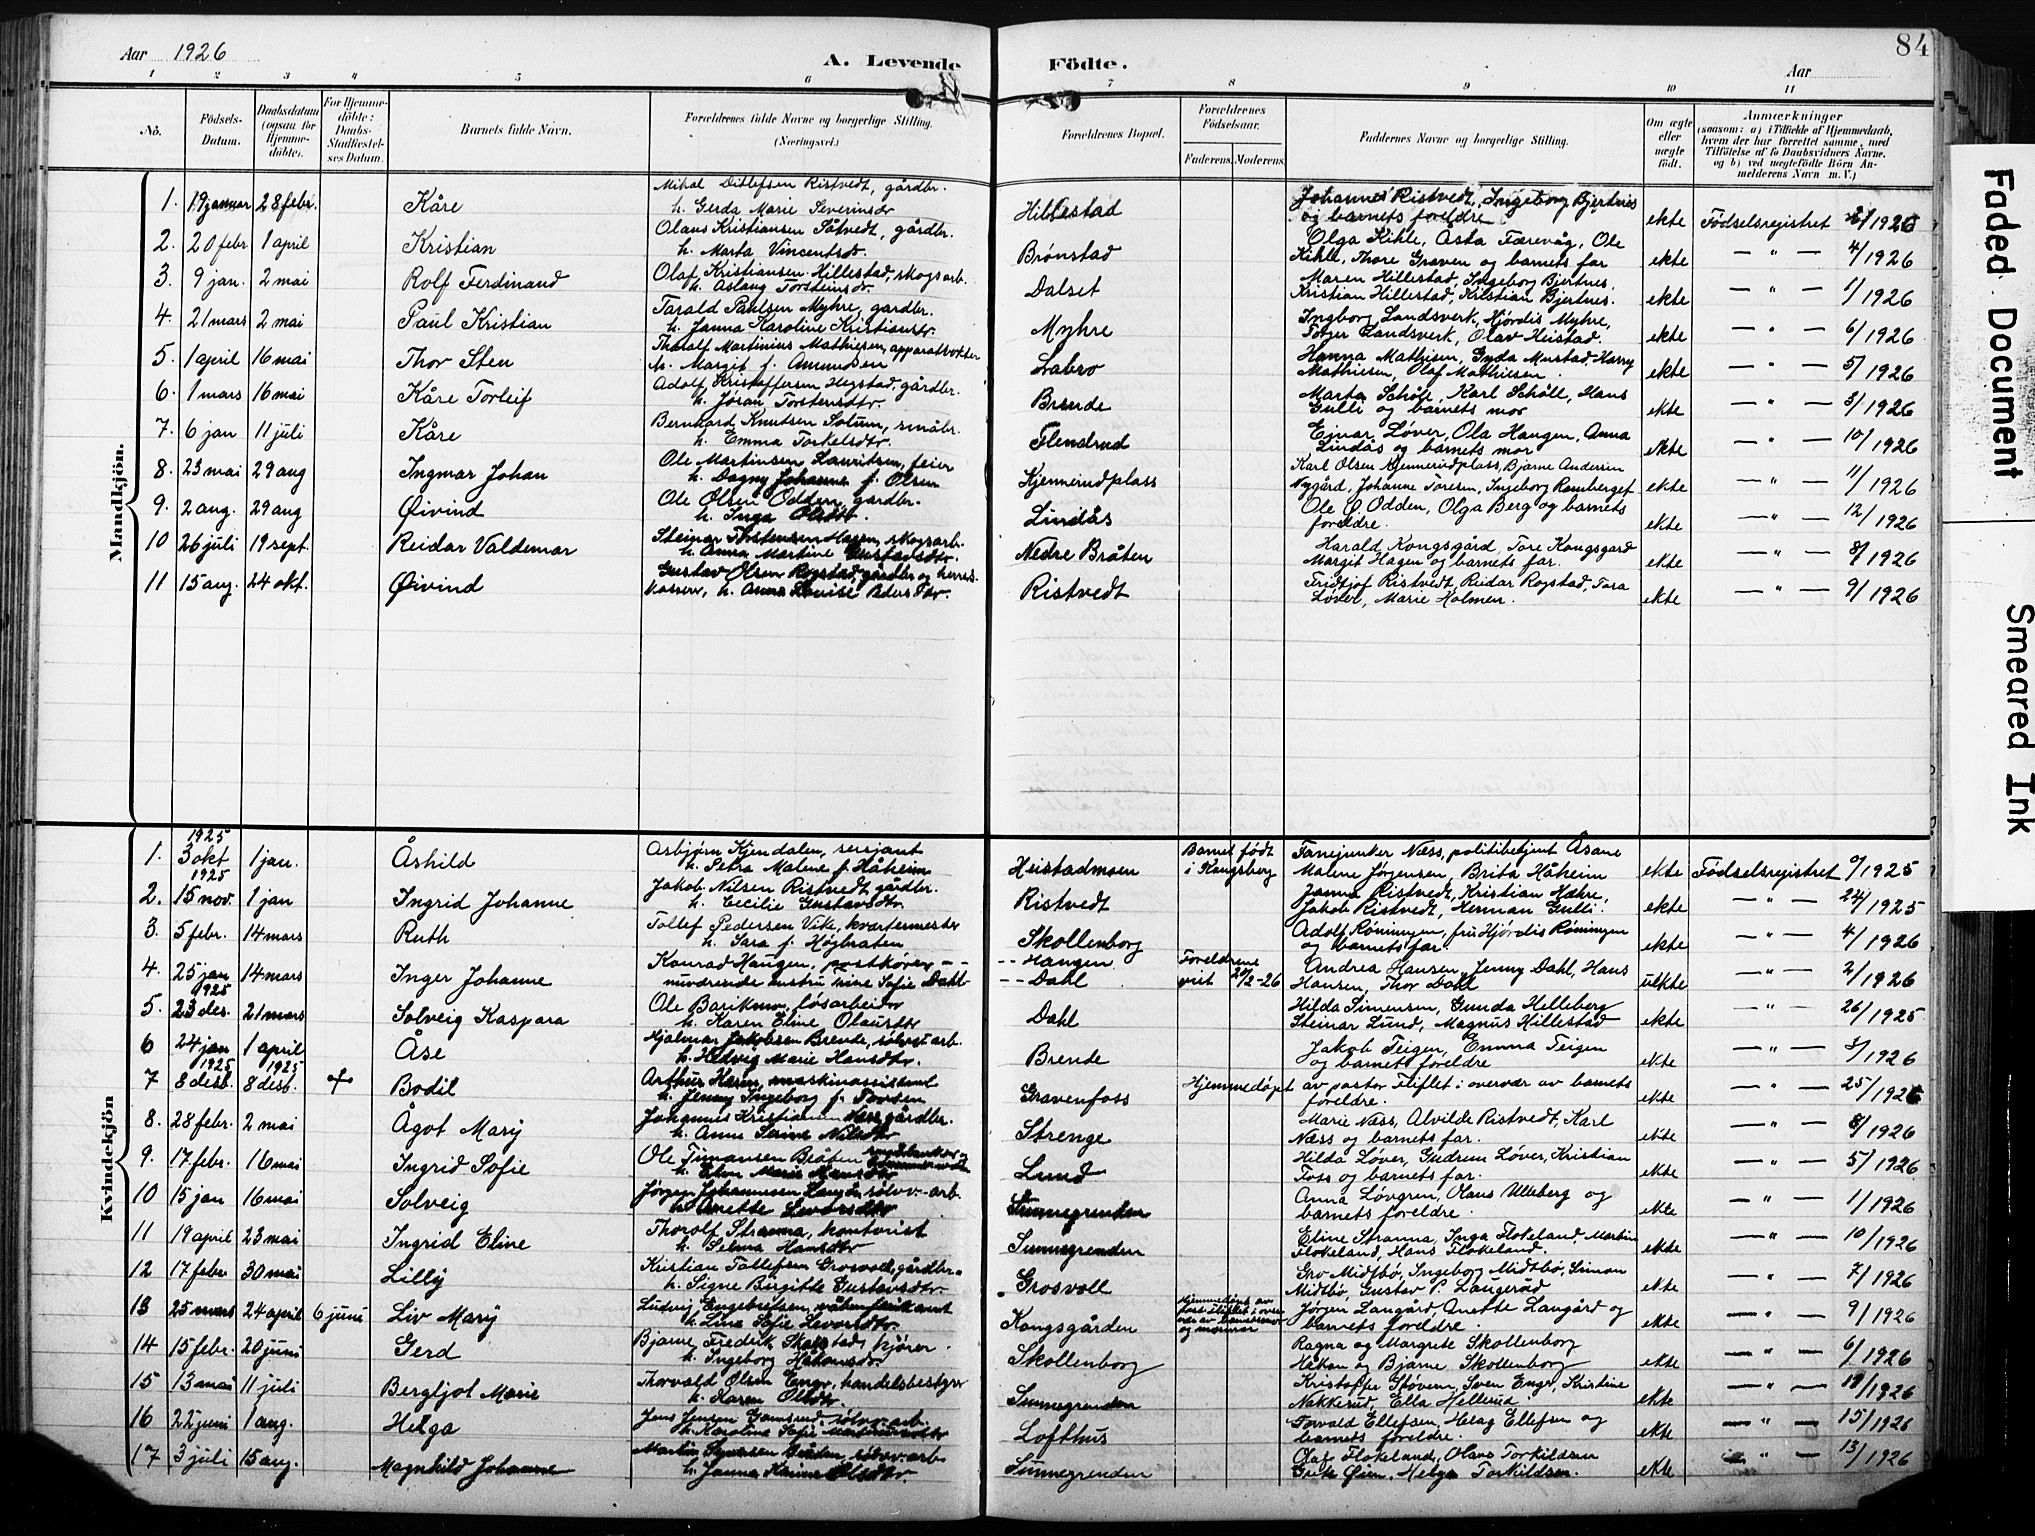 Aar 1926
A. Levende Födte.
Aar
84
1 2 3 4 5 6 7 8 9 10 11
No.
Födsels-Datum.
Daabsdatum (ogsaa for Hjemme-döbte).
For Hjemme-döbte: Daabs-Stadfæstel-ses Datum.
Barnets fulde Navn.
Forældrenes fulde Navne og borgerlige Stilling. (Næringsvei.)
Forældrenes Bopæl.
Forældrenes Födselsaar.
Faderens. Moderens.
Faddernes Navne og borgerlige Stilling.
Om ægte eller uægte födt.
Anmærkninger
(saasom: a) i Tilfælde af Hjemmedaab,
hvem der har forrettet samme, med
Tilföielse af to Daabsvidners Navne,
og b) ved uægtefödte Börn An-
melderens Navn m. V.)
Mandkjön.
1. 19 januar 28 febr. Kåre
Mikal Ditlefsen Ristvedt, gårdbr.
h. Gerda Marie Severinsdr
Hillestad
Johannes Ristvedt, Ingeborg Bjertnes
og barnets foreldre
ekte Fødselsregistret 2/1926
2. 20 febr 1 april Kristian
Olaus Kristiansen Såtvedt, gårdbr.
h. Marta Vincentsdr.
Brønstad
Olga Kihle, Åsta Færevåg, Ole
Kihle, Thore Graven og barnets far
ekte — " — 4/1926
3. 9 jan. 2 mai Rolf Ferdinand
Olaf Kristiansen Hillestad, skogsarb.
h. Aslaug Torsteinsdr
Dalset
Maren Hillestad, Ingeborg Bjertnes,
Kristian Hillestad, Kristian Bjertnes.
ekte — " — 1/1926
4. 21 mars 2 mai Paul Kristian
Tarald Paulsen Myhre, gardbr.
h. Janna Karoline Kristiansdr.
Myhre
Ingborg Landsverk, Hjørdis Myhre,
Torger Landsverk, Olav Heistad.
ekte — " — 6/1926
5. 1 april 16 mai Thor Sten
Thoralf Martinius Mathiesen, apparatvokter
h. Margit f. Amundsen
Labro
Hanna Mathisen, Gyda Mustad, Harry
Mathiesen, Olaf Mathiesen.
ekte — " — 5/1926
6. 1 mars 16 mai Kåre Torleif
Adolf Kristoffersen Hegstad, gårdbr.
h. Jøran Torstensdtr.
Brende
Marta Schöll, Karl Schöll, Hans
Gulli og barnets mor
ekte — " — 3/1926
7. 6 jan 11 juli Kåre
Bernhard Knutsen Solum, småbr.
h. Emma Torkelsdtr.
Flendrud
Einar Løver, Ola Haugen, Anna
Lindås og barnets mor
ekte — " — 10/1926
8. 23 mai 29 aug Ingmar Johan
Ole Martinsen Lauritsen, feier
h. Dagny Johanne f. Olsen
Kjennerudplass
Karl Olsen Kjennerudplass, Bjarne Andersen
Nygård, Johanne Toresen, Ingeborg Ramberget
ekte — " — 11/1926
9. 2 aug. 29 aug Øivind
Ole Olsen Odden, gardbr.
h. Inga Olsdtr.
Lindås
Ole O. Odden, Olga Berg og barnets
foreldre.
ekte — " — 12/1926
10 26 juli 19 sept. Reidar Valdemar
Steinar Torstensen Hagen, skogsarb.
h. Anna Martine Gustavsdtr.
Nedre Bråten
Harald Kongsgård, Tore Kongsgard
Margit Hagen og barnets far.
ekte — " — 8/1926
11 15 aug. 24 okt. Øivind
Gustav Olsen Rogstad, gårdbr og herreds-
kasserer, h. Anna Lovise Pedersdtr.
Ristvedt
Fridtjof Ristvedt, Reidar Rogstad, Tora
Løver, Marie Holmen.
ekte — " — 9/1926
Kvindekjön
1. 1925 3 okt 1 jan. Åshild
Asbjørn Kjendalen, sersjant
h. Petra Malene f. Håheim
Heistadmoen
Barnet født i Kongsberg
Fanejunker Næss, politibetjent Åsane
Malene Jørgensen, Brita Håheim
ekte Fødselsregistret 9/1925
2. 1925 15 nov. 1 jan Ingrid Johanne
Jakob Nilsen Ristvedt gårdbr.
h. Cecilie Gustavsdtr.
Ristvedt
Janna Ristvedt, Kristian Hæhre,
Jakob Ristvedt, Herman Gulli.
ekte — " — 24/1925
3. 5 febr. 14 mars Ruth
Tollef Pedersen Vike, kvartermester
h. Sara f. Højbraten
Skollenborg
Adolf Rønningen, fru Hjørdis Rønningen
og barnets far.
ekte — " — 4/1926
4. 25 jan 14 mars Inger Johanne
Konrad Haugen, postkjører - -
nuværende hustru Trine Sofie Dahl
-- Haugen
-- Dahl
Foreldrene viet 20/2-26
Andrea Hansen, Jenny Dahl, Hans
Hansen, Thor Dahl
uekte — " — 2/1926
5. 1925 23 des. 21 mars Solveig Kaspara
Ole Bariksen, løsarbeider
h. Karen Eline Olausdtr
Dahl
Hilda Simensen, Gunda Helleberg
Steinar Lund, Magnus Hillestad
ekte — " — 26/1925
6 24 jan 1 april Åse
Hjalmar Jakobsen Brende, sølvv.arb.
h. Hedvig Marie Hansdtr.
Brende
Jakob Teigen, Emma Teigen
og barnets foreldre
ekte — " — 3/1926
7 1925 8 desb. 1925 8 desb. + Bodil
Arthur Hærm, maskinassistent
h. Jenny Ingeborg f. Torsen
Gravenfoss
Hjemmedøpt av pastor Fliflet i overvær av barnets
foreldre.
ekte — " — 25/1926
8. 28 febr. 2 mai Ågot Mary
Johannes Kristiansen Næss gårdbr.
h. Anna Serine Nilsdtr
Strenge
Marie Næss, Alvilde Ristvedt, Karl
Næss og barnets far.
ekte — " — 8/1926
9. 17 febr. 16 mai Ingrid Sofie
Ole Simansen Bråten
h. Elen Marie Hansdtr
Lund
Hilda Løver, Gudrun Løver, Kristian
Foss og barnets far.
ekte — " — 5/1926
10 15 jan 16 mai Solveig
Jørgen Johannesen Langård, sølvv.-arb.
h. Anette Levorsdtr
Sunnegrenden
Anna Løvgren, Olaus Ulleberg og
barnets foreldre.
ekte — " — 1/1926
11 19 april 23 mai Ingrid Eline
Thorolf Stranna, kontorist
h. Selma Hansdtr
Sunnegrenden
Eline Stranna, Inga Flokeland, Martin
Flokeland, Hans Flokeland.
ekte — " — 10/1926
12 17 febr 30 mai Lilly
Kristian Tollefsen Grosvold, gårdbr.
h. Signe Bergitte Gustavsdtr.
Grosvoll
Gro Midtbø, Ingeborg Midtbø, Simon
Midtbø, Gustav P. Laugerud
ekte — " — 7/1926
13 25 mars 24 april 6 juni Liv Mary
Ludvig Engebretsen, våbenfabr.arb
h. Lina Sofie Levorsdtr.
Kongsgården
Hjemmedøpt av past. Fliflet i over-
vær av
og mormor
Jørgen Langård, Anette Langård og
barnets foreldre.
ekte — " — 9/1926
14 15 febr. 20 juni Gerd
Bjarne Fredrik Skolstad, kjører
h. Ingeborg Håkonsdtr
Skollenborg
Ragna og Margrete Skollenborg
Håkon og Bjarne Skollenborg
ekte — " — 6/1926
15 13 mai 11 juli Bergljot Marie
Thorvald Olsen Enger, handelsbestyrer
h. Karen Olsdtr
Sunnegrenden
Kristoffer Støvern, Sven Enger, Kristine
Nakkerud, Ella Hellerud
ekte — " — 19/1926
16 22 juni 1 aug. Helga
Jens Jensen Gamsrud, sølvv.arb.
h. Karoline Sofie
Lofthus
Torvald Ellefsen, Helag Ellefsen og
barnets foreldre.
ekte — " — 15/1926
17 3 juli 15 aug. Magnhild Johanne
sølvv.arb
h. Janna Hanna Olsdtr
Sunnegrenden
Olaf Flokeland, Olaus Torkildsen
Gurå Øien, Helga Torkildsen.
ekte " — 13/1926
Faded Document
Smeared Ink